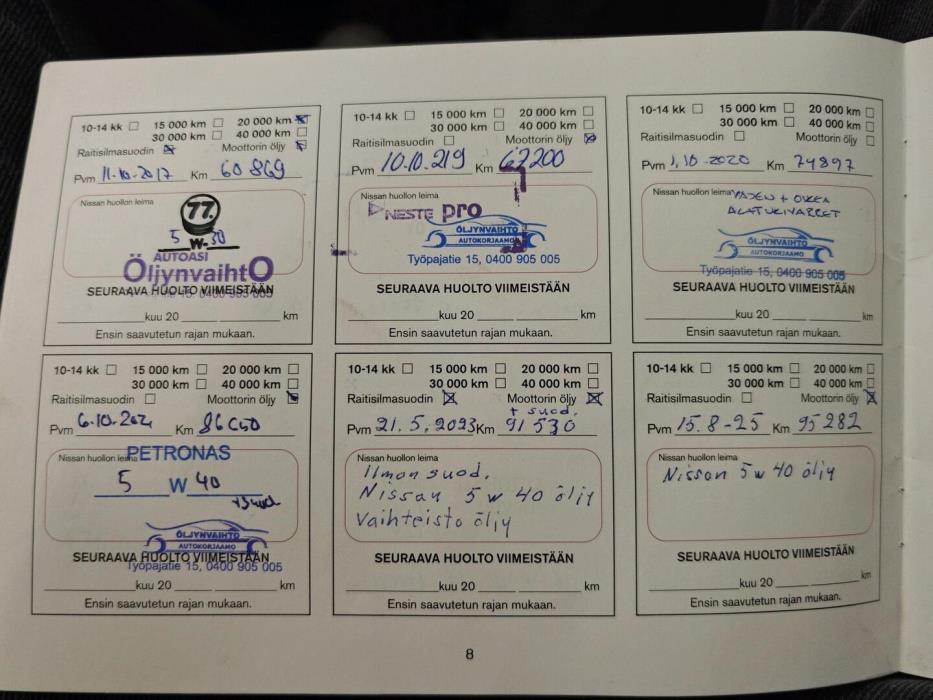 10-14 kk 15 000 km 20 000 km
30 000 km 40 000 km
Raitisilmasuodin Moottorin öljy
Pvm 11.10.2017 Km 60 869
Nissan huollon leima
77.
5 W-30
AUTOASI
ÖljynvaihtO
15, 0400 905 005
SEURAAVA HUOLTO VIIMEISTÄÄN
kuu 20 km
Ensin saavutetun rajan mukaan.
10-14 kk 15 000 km 20 000 km
30 000 km 40 000 km
Raitisilmasuodin Moottorin öljy
Pvm 10.10.219 Km 67200
Nissan huollon leima
NESTE pro
ÖLJYNVAIHTO
AUTOKORJAAMO
Työpajatie 15, 0400 905 005
SEURAAVA HUOLTO VIIMEISTÄÄN
kuu 20 km
Ensin saavutetun rajan mukaan.
10-14 kk 15 000 km 20 000 km
30 000 km 40 000 km
Raitisilmasuodin Moottorin öljy
Pvm 1.10.2020 Km 74897
Nissan huollon leima
VASEN + OIKEA
ALATUKIVARRET
ÖLJYNVAIHTO
AUTOKORJAAMO
Työpajatie 15, 0400 905 005
SEURAAVA HUOLTO VIIMEISTÄÄN
kuu 20 km
Ensin saavutetun rajan mukaan.
10-14 kk 15 000 km 20 000 km
30 000 km 40 000 km
Raitisilmasuodin Moottorin öljy
Pvm 6.10.202 Km
Nissan huollon leima
PETRONAS
5 W 40
ÖLJYNVAIHTO
AUTOKORJAAMO
SEURAAVA HUOLTO VIIMEISTÄÄN
Työpajatie 15, 0400 905 005
kuu 20 km
Ensin saavutetun rajan mukaan.
10-14 kk 15 000 km 20 000 km
30 000 km 40 000 km
Raitisilmasuodin Moottorin öljy
+ suod.
Pvm 21.5.2023 Km 91 530
Nissan huollon leima
Ilman suod.
Nissan 5 w 40 öljy
Vaihteisto öljy
SEURAAVA HUOLTO VIIMEISTÄÄN
kuu 20 km
Ensin saavutetun rajan mukaan.
10-14 kk 15 000 km 20 000 km
30 000 km 40 000 km
Raitisilmasuodin Moottorin öljy
Pvm 15.8-25 Km 95 282
Nissan huollon leima
Nissan 5 w 40 öljy
SEURAAVA HUOLTO VIIMEISTÄÄN
kuu 20 km
Ensin saavutetun rajan mukaan.
8